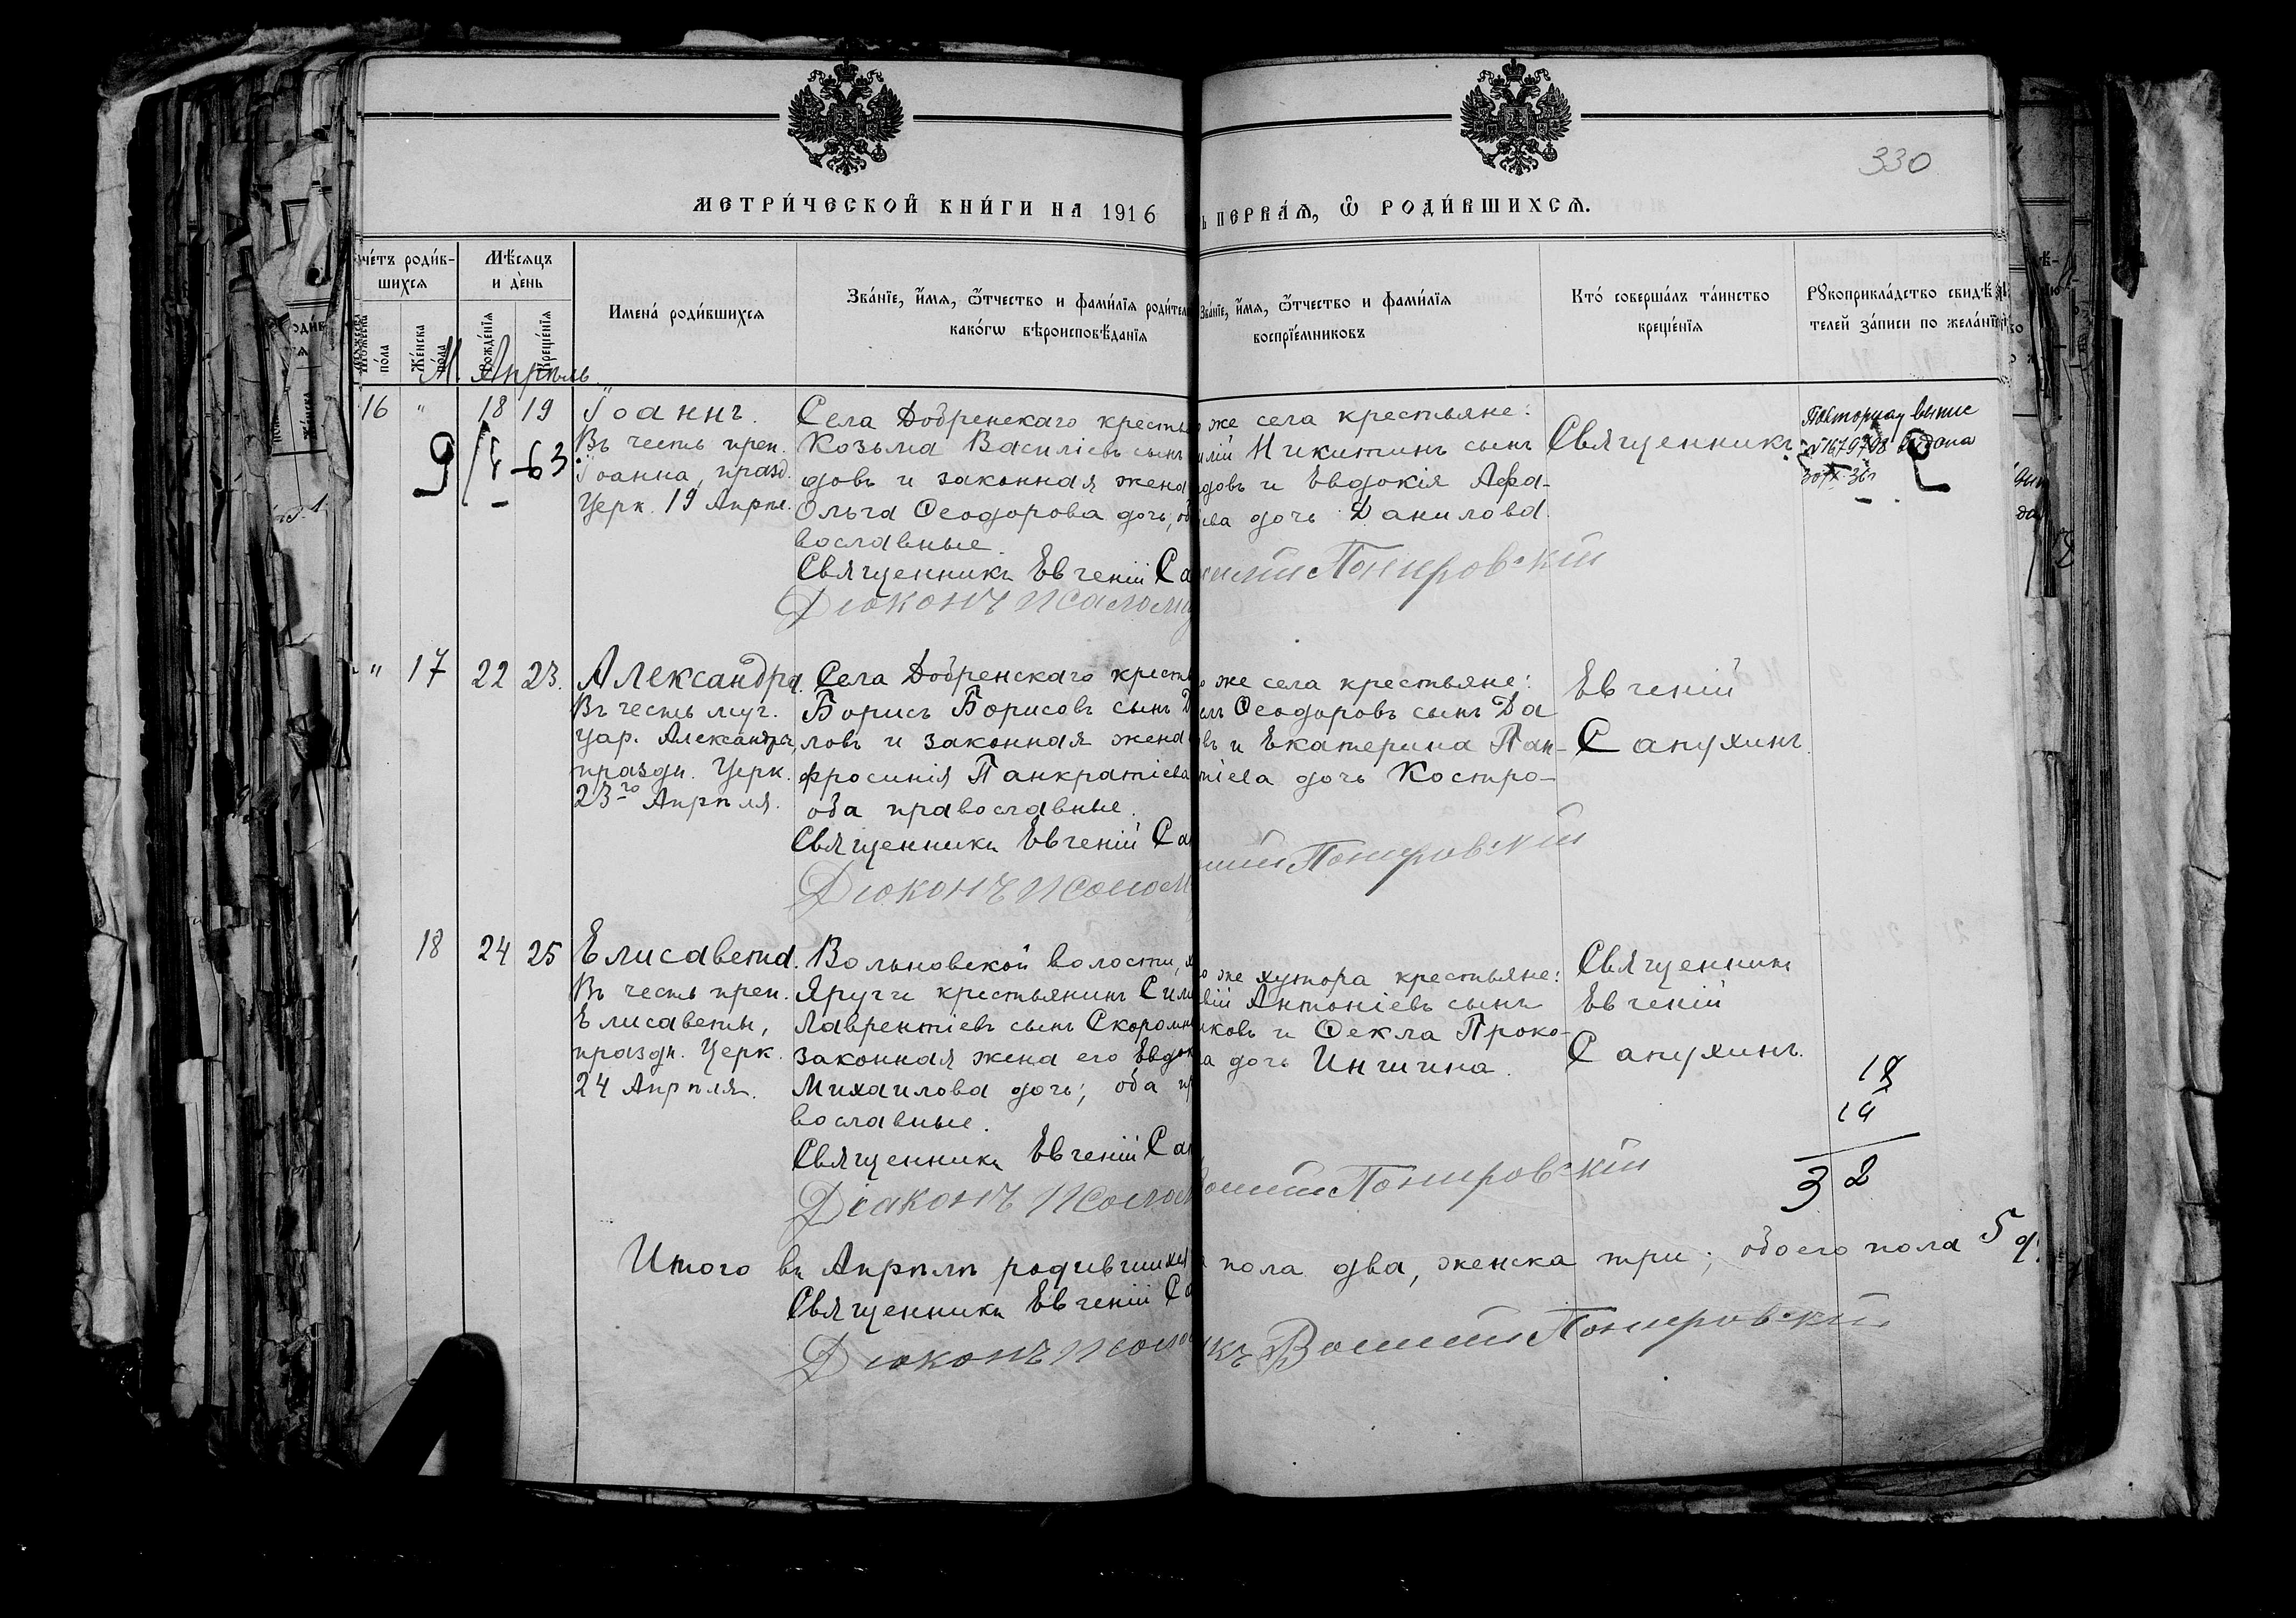 330
МЕТРИ́ЧЕСКОЙ КНИ́ГИ НА 1916
ПЕРВА́Я, Ѽ РОДИ́ВШИХСЯ.
че́тъ роди́в-
шихся
Мѣ́сяцъ
и де́нь
пола
Же́нска
пола
Рожде́нія
Креще́нія
Имена́ роди́вшихся
Зва́ніе, и҆́мя, ѻ҆́тчество и фами́лія родител
како́гѡ вѣроисповѣ́данія
Зва́ніе, и҆́мя, ѻ҆́тчество и фами́лія
воспріе́мниковъ
Кто̀ соверша́лъ та́инство
креще́нія
Рꙋкоприкла́дство свидѣ́-
телей за́писи по жела́нію
М. Апрѣль.
16 " 18 19
Іоаннъ.
Въ честь преп.
Іоанна, празд.
Церк. 19 Апрѣл.
Села Добренскаго кресть
Козьма Василіевъ сынъ
довъ и законная жена
Ольга Ѳеодорова дочь, об
вославные.
Священникъ Евгеній Са
Діаконъ
же села крестьяне:
илій Никитинъ сынъ
довъ и Евдокія Афа-
сіева дочь Данилова.
Понировскій
Священникъ
Повторная выпис
№1679798 выдана
" 17 22 23.
Александра.
Въ честь муч.
Цар. Александры,
праздн. Церк.
23го Апрѣля.
Села Добренскаго кресть
Борисъ Борисовъ сынъ Д
ловъ и законная жена
фросинія Панкратіева
оба православные.
Священникъ Евгеній Са
Діаконъ
же села крестьяне:
Ѳеодоровъ сынъ Да
въ и Екатерина Пан-
тіева дочь Костро-
Понировскій
Евгеній
Сапухинъ.
18 24 25
Елисавета.
Въ честь преп.
Елисаветы,
праздн. Церк.
24 Апрѣля.
Вольновской волости, х
Яруги крестьянинъ Сила
Лаврентіевъ сынъ Скоромн
законная жена его Евдок
Михаилова дочь; оба пр
вославные.
Священникъ Евгеній Сап
Діаконъ
же хутора крестьяне:
вій Антоніевъ сынъ
иковъ и Ѳекла Проко-
ва дочь Иншина.
Понировскій
Священникъ
Евгеній
Сапухинъ.
18
14
32
Итого въ Апрѣлѣ родившихся
пола два, женска три; обоего пола 5 д.
Священникъ Евгеній Са
Діаконъ
Понировскій